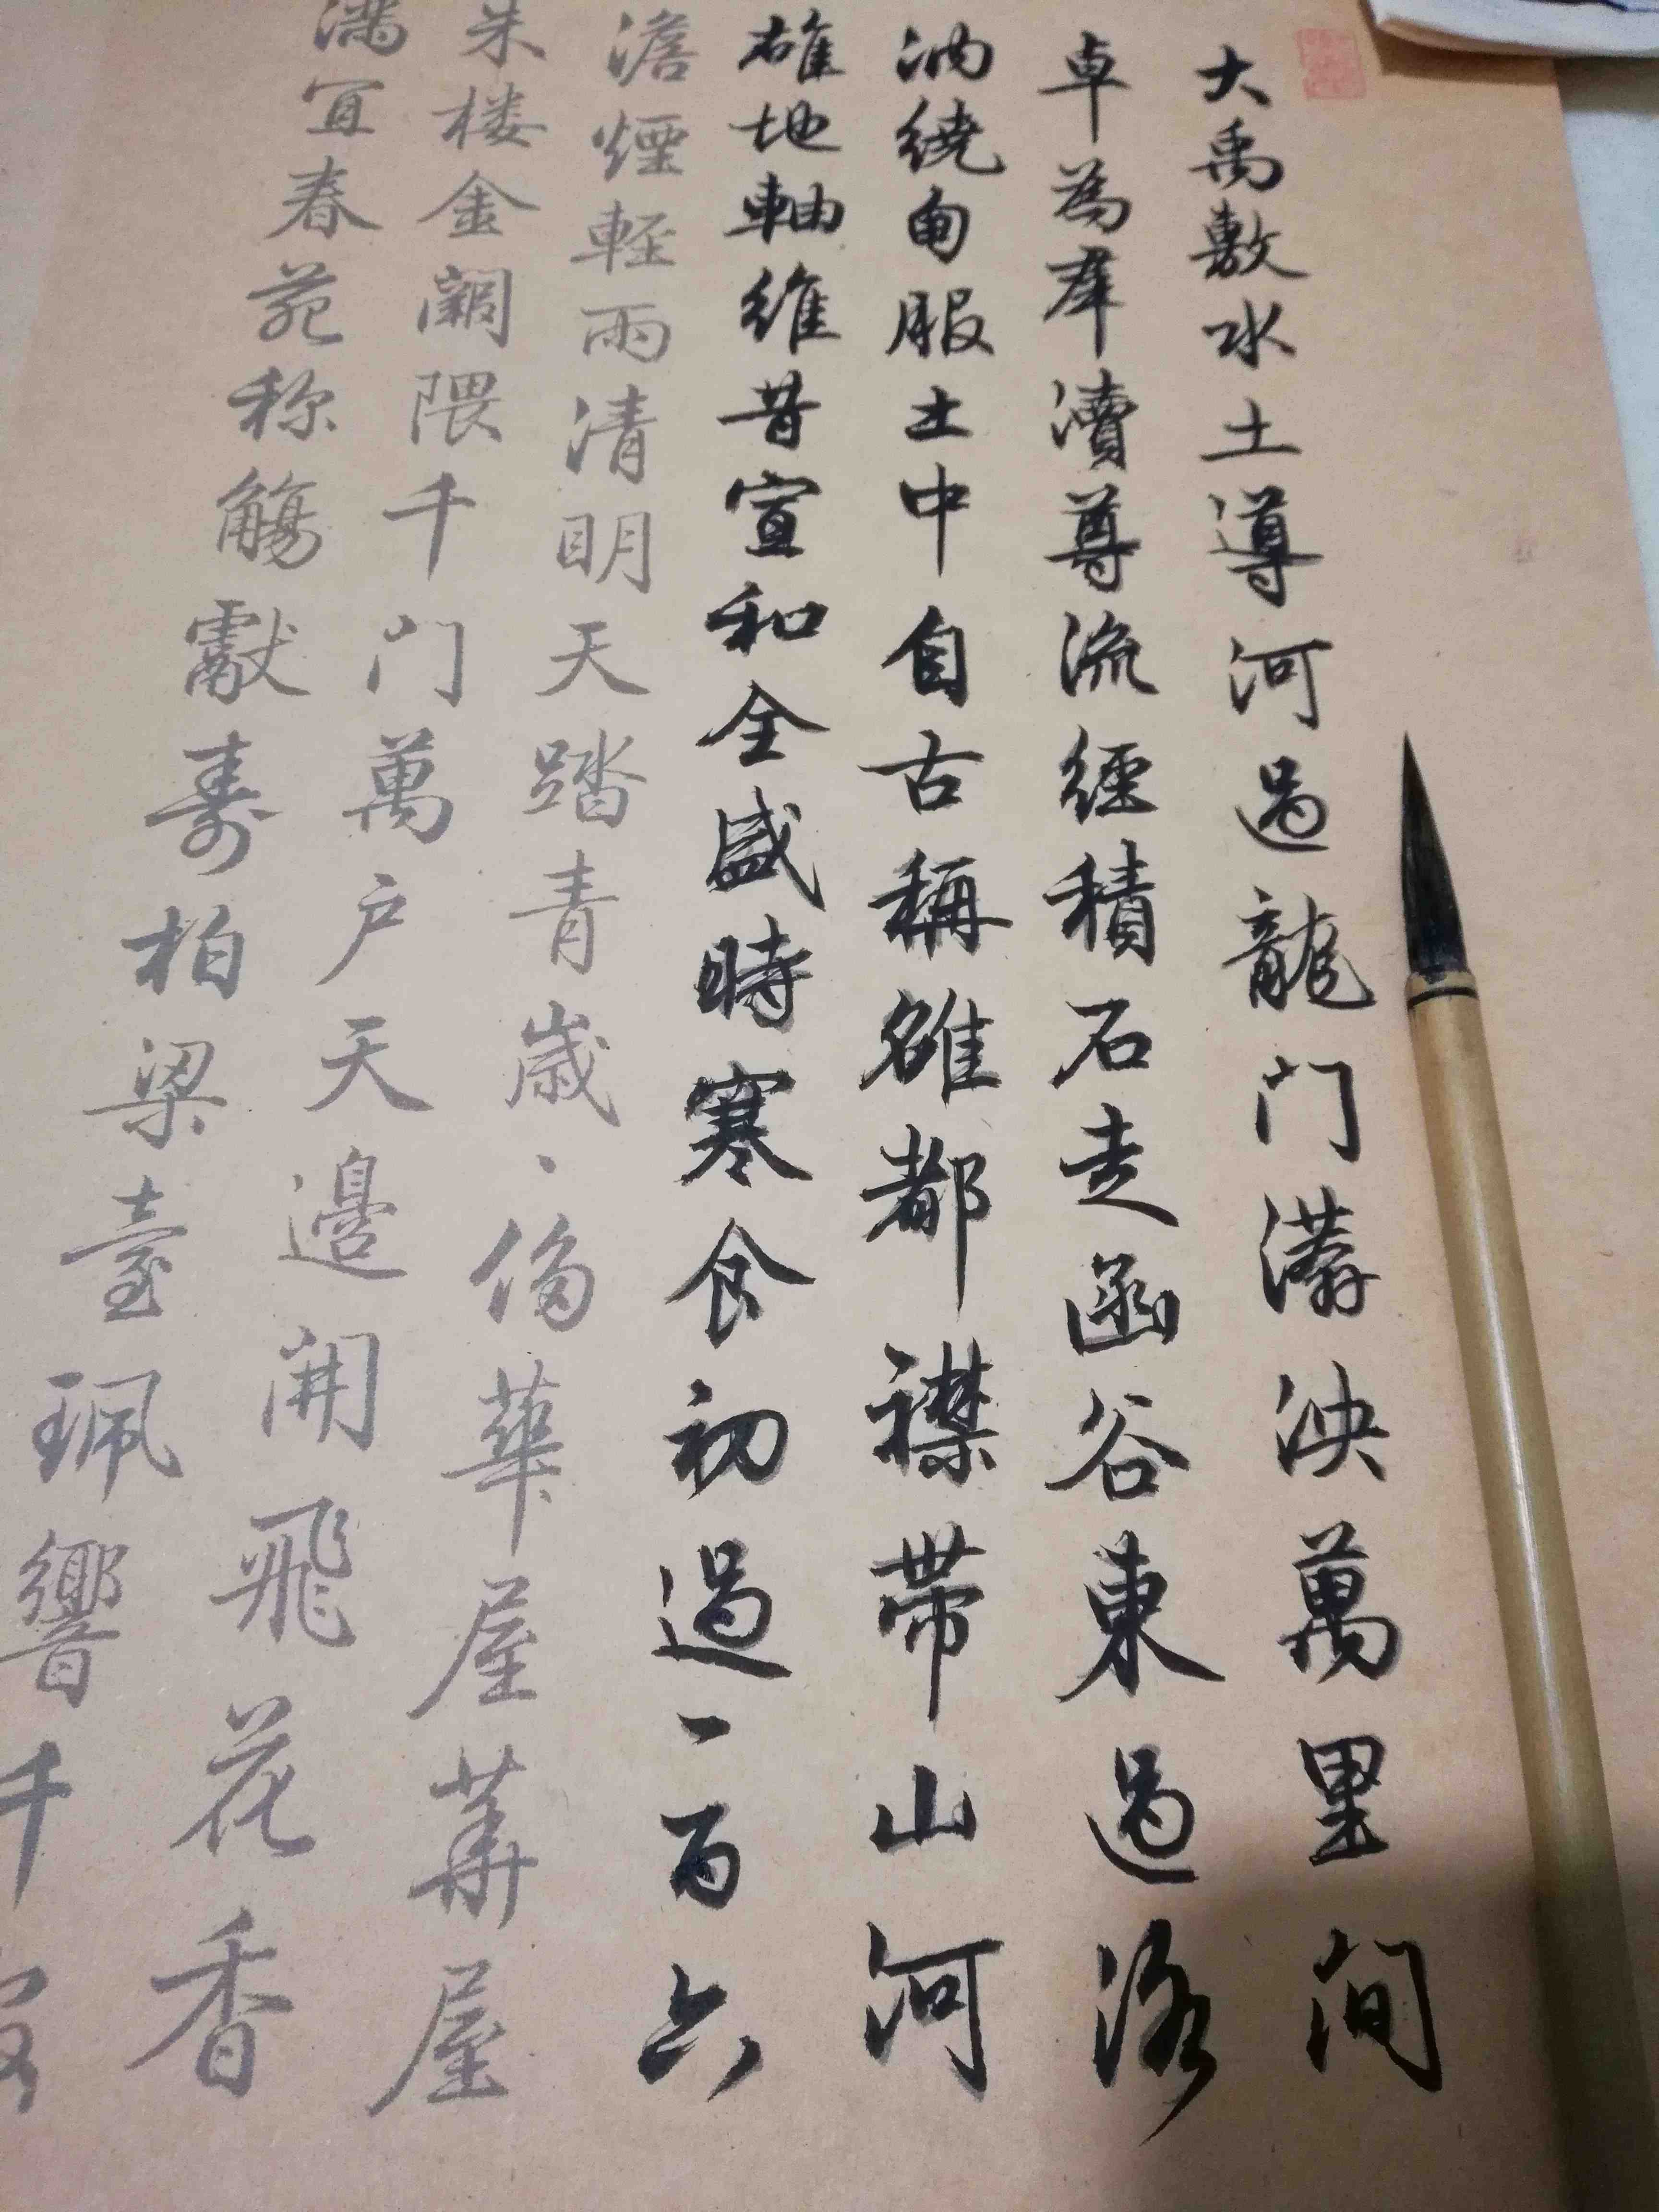 大禹敷水土導河過龍门漭泱萬里间
卓為群瀆尊流經積石走函谷東過洛
汭繞甸服土中自古稱雄都襟带山河
雄地軸維昔宣和全盛時寒食初過一百六
澹煙輕雨清明天踏青歲、侈華屋華屋
朱楼金闕隈千门萬户天邊開飛花香
满宜春苑称觴獻寿柏梁臺珮響千